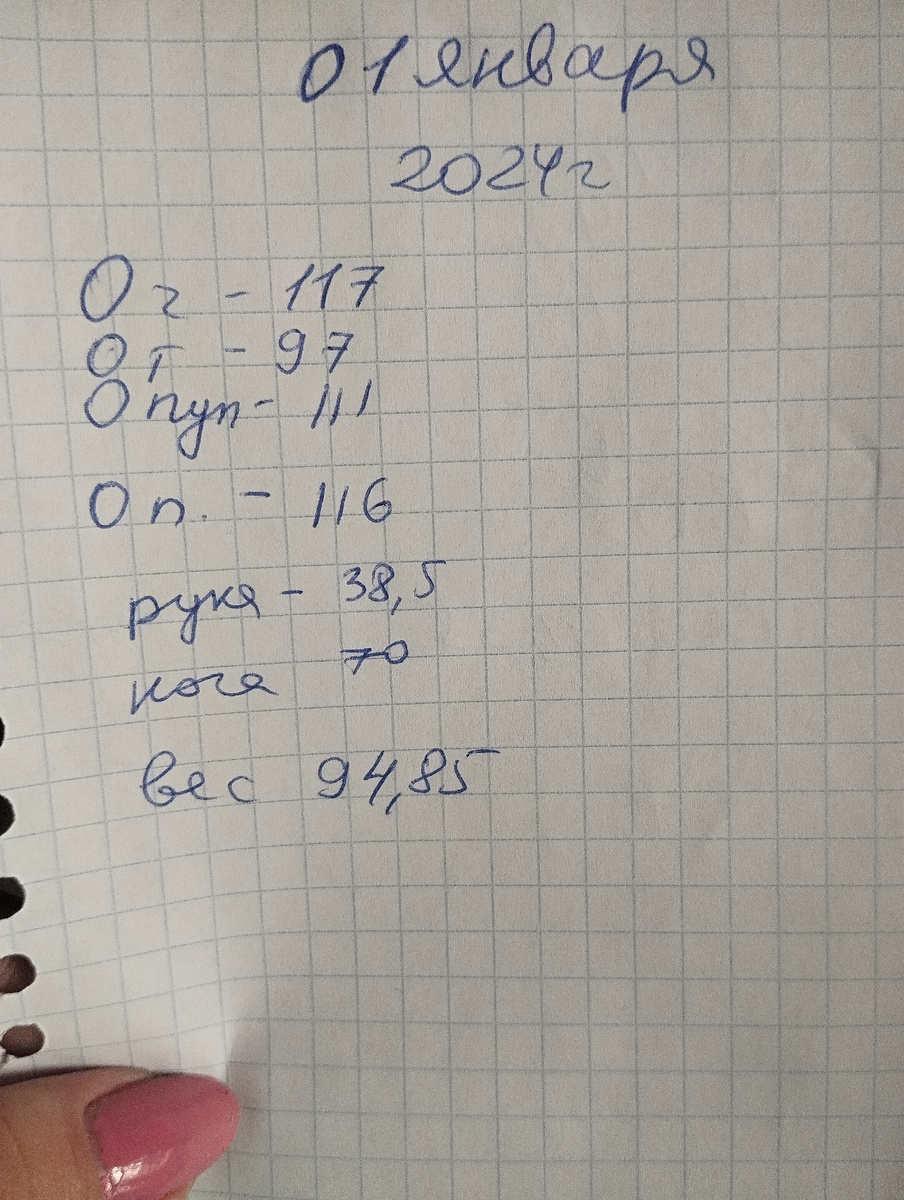 01 января
2024г
Ог - 117
От - 97
Опуп- 111
Оп. - 116
рука - 38,5
нога 70
вес 94,85